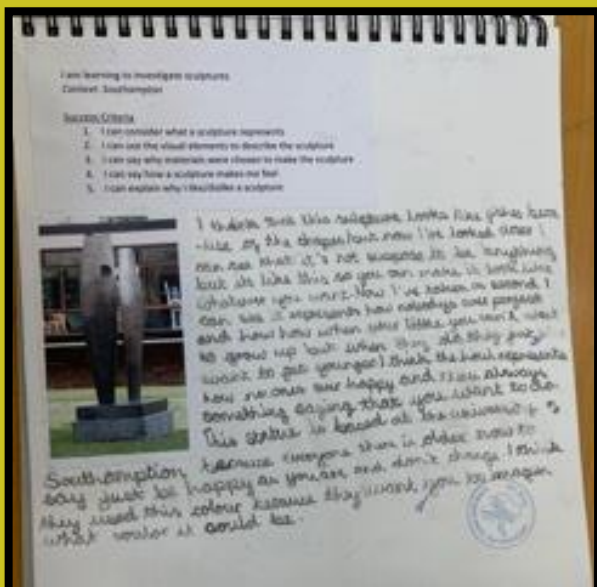 I am learning to investigate sculptures
Context: Southampton
Success Criteria
1. I can consider what a sculpture represents
2. I can use the visual elements to describe the sculpture
3. I can say why materials were chosen to make the sculpture
4. I can say how a sculpture makes me feel
5. I can explain why I like/dislike a sculpture
I think that this sculpture looks like fishes beca
-use of the shapes but now I've looked closer I
can see that it's not suppose to be anything
but its like this so you can make it look like
whatever you want. Now I've taken a second I
can see it represents how nobodys perfect
and how when your little you can't wait
to grow up but when they do they just
want to get younger. I think the hole represents
how no ones happy and theu always
something saying that you want to do.
This statue is based at the university of
Southamption because everyone their is older now to
say just be happy as you are and don't change. I think
they used this colour because they want you to imagen
what it could be.